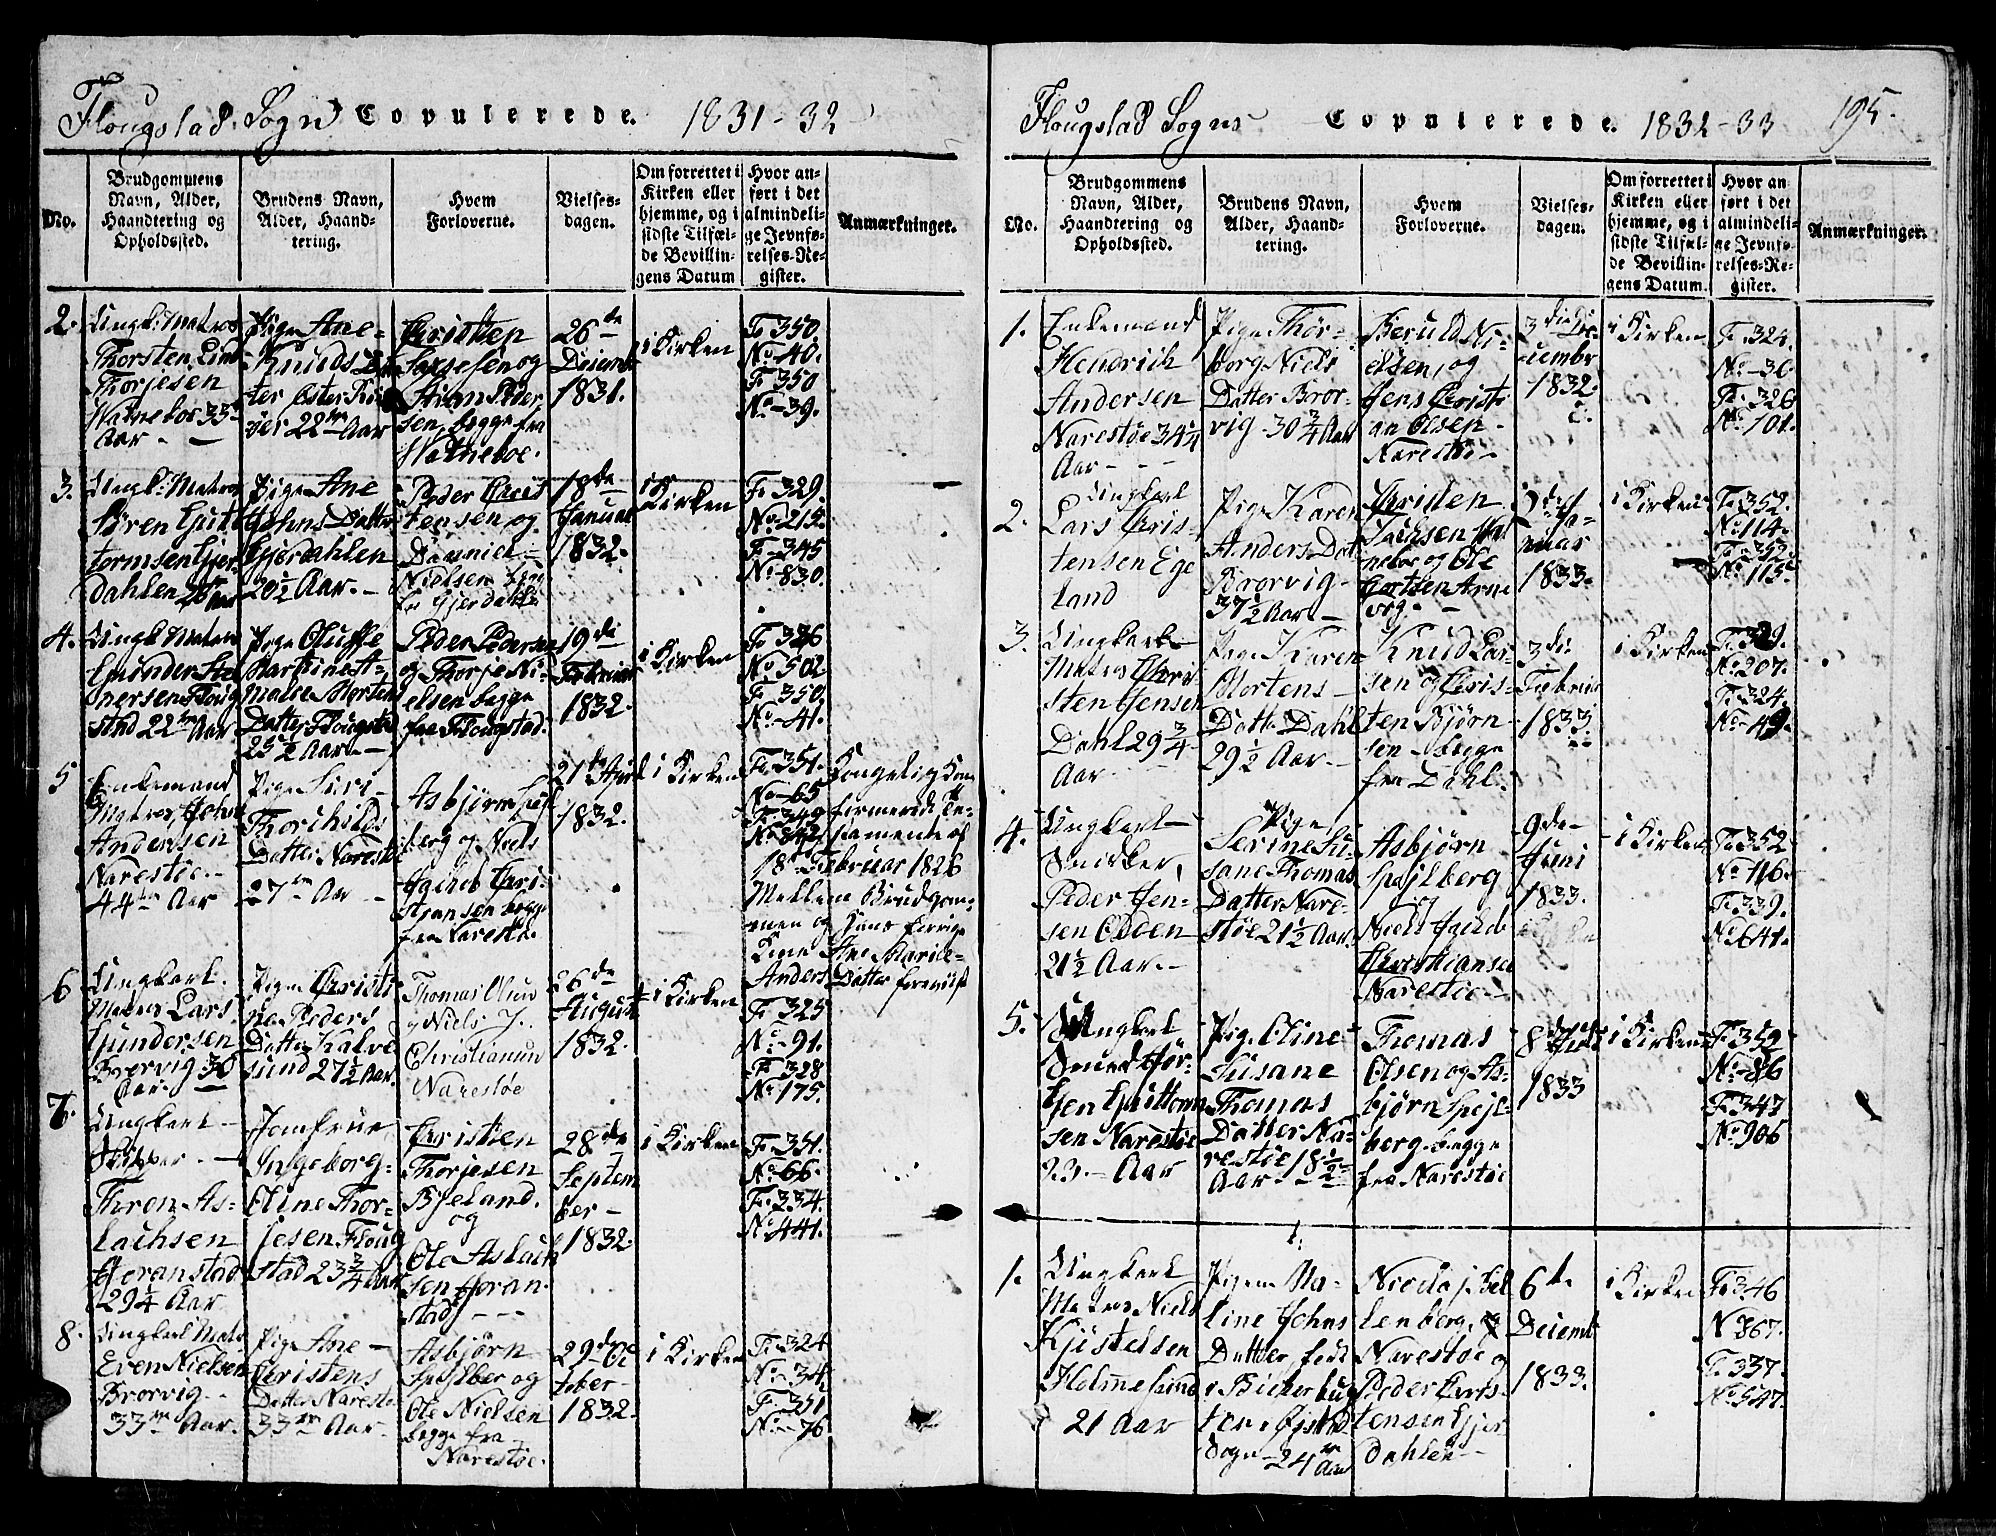 Flougstad Sogn Copulerede. 1831-32
No.
Brudgommens
Navn, Alder,
Haandtering og
Opholdssted.
Brudens Navn,
Alder, Haand-
tering.
Hvem
Forloverne.
Vielses-
dagen.
Om forrettet i
Kirken eller
hjemme, og i
sidste Tilfæl-
de Bevillin-
gens Datum
Hvor an-
ført i det
almindeli-
ge Jevnfø-
relses-Re-
gister.
Anmærkninger.
2.
Ungk: Matros
Thorsten
Thorjesen
33
Aar
Pige Ane
Knuds
ter Øster Riis
øer 22 Aar
Christen
og
Peder
sen, begge fra
26de
Decemb
1831.
i Kirken
F. 350.
No. 40.
F. 350
No. 39.
3.
Ungk: Matros
Søren Gutt
tormsen Gjer
dahlen Aar
Pige Ane
Johns Datter
Gjerdahlen
20½ Aar.
Peder Chris
tensen og
Danniel
Nielsen begg
fra Gjerdahle
18de
Januar
1832.
i
Kirken
F. 329.
No. 215.
F. 345
No. 830.
4.
Ungk Matros
Gunder
nersen Floug
stad 22 Aar
Pige Oluffe
Bartine A-
malia Mortens
Datter Flougstad
25½ Aar
Peder Pedersen
og Thorje Ni-
elsen begge
fra Flougstad.
19de
Februar
1832.
i Kirken
F. 326
No. 502.
F. 350
No. 41.
5
Enkemand
Matros, John
Andersen
Narestøe
44 Aar
Pige Siri
Thorchilds
Datter Narestø
27 Aar
Asbjørn Spejl
berg og Niels
Jacob Chri-
stjansen begge
fra Narestø.
21de April
1832.
i Kirken
F. 351.
No. 65
F. 349
Kongelig Con
firmered Te-
stamente af
18 Februar 1826
Mellem Brudgom-
men og Hans forrige
Kone Ane Marie
Anders Datter forevist
6
Ungkarl
Matros Lars
Gundersen
Brorvig 30
Aar.
Pige Christi
ne Peders
Datter Kalve
sund 27½ Aar.
Thomas Olsen
og Niels J.
Christiansen
Narestøe
26de
August
1832.
i Kirken
F. 325
No. 91.
F. 328
No. 175.
7.
Ungkarl
Skipper.
Thron As-
lachsen
Joranstad
29¼ Aar
Jomfrue
Ingeborg
Oline Thor-
jesen Floug
stad 23¾ Aar
Christen
Thorjesen
Bjeland.
og
Ole Aslach
sen Joran-
stad
28de
Septem
ber
1832.
i Kirken
F. 351.
No. 66.
F. 334.
No. 441.
8.
Ungkarl Matr.
Even Nielsen
Brorvig
33 Aar.
Pige Ane
Christens
Datter Narestø
33 Aar.
Asbjørn
Spejlber og
Ole Nielsen
begge fra
Narestøe.
29de Oc
tober
1832.
i Kirken
F. 324
No. 34
F. 351
No. 76
Flougstad Sogns Copulerede. 1832-33 195.
No.
Brudgommens
Navn, Alder,
Haandtering og
Opholdssted.
Brudens Navn,
Alder, Haand-
tering.
Hvem
Forloverne.
Vielses-
dagen.
Om forrettet i
Kirken eller
hjemme, og i
sidste Tilfæl-
de Bevillin-
gens Datum.
Hvor an
ført i det
almindeli-
ge Jevnfø-
relses-Re-
gister.
Anmærkninger.
1.
Enkemand
Hendrich
Andersen
Narestøe 34¼
Aar
Pige Thor-
borg Niels
Datter Bror-
vig 30¾ Aar
Beruld Ni-
elsen, og
Jens Christi
an Olsen
Narestø
3die De
cembr
1832.
i Kirken
F. 324.
No. 36.
F. 326
No. 101.
2.
Ungkarl
Lars Chris-
tensen Ege
land
Pige Karen
Anders Dat
Brorvig
37½ Aar
Christen
og Ole
Arne
vig.
Ja-
nuar
1833.
i Kirken
F. 352.
No. 114.
F. 352
No. 115.
3.
Ungkarl
Matros Chris
sten Jensen
Dahl 29¾
Aar
Pige Karen
Mortens
Datter Dahl
29½ Aar
Knud Lar-
sen og Chris-
ten Bjørn
sen begge
fra Dahl.
3die
Februar
1833.
i Kirken
No. 207.
F. 324.
No. 49.
4.
Ungkarl
Snedker,
Peder Jen-
sen Odden
21½ Aar
Pige
Serine Su-
sane Thomas
Datter Nare-
støe 21½ Aar.
Asbjørn
Spejlberg
og
Niels Jacob
Christiansen
Narestøe
9de
Juni
1833.
i Kirken
F. 352
No. 116.
F. 339.
No. 641.
5.
Ungkarl
Smed Jør-
gen Guttorm
sen Narestøe
23. Aar
Pige Oline
Susane
Thomas
Datter Na-
restøe 18½
Aar.
Thomas
Olsen og As-
bjørn Spejl-
berg begge
fra Narestøe
8de Juli
1833
i Kirken
F. 352
No. 86
F. 347
No. 906
1.
Ungkarl
Matros Niels
Kjistelsen
Holmesund
21 Aar
Pigen Ma-
line Johns
Datter, født
ter i Øjestad
Sogn 24 Aar
Nicolaj Bel
lenberg, og
Narestøe og
Peder Chris-
tensen Gjer
dahlen
6te
Decemb
1833.
i Kirken
F. 346
No. 867.
F. 337
No. 547.